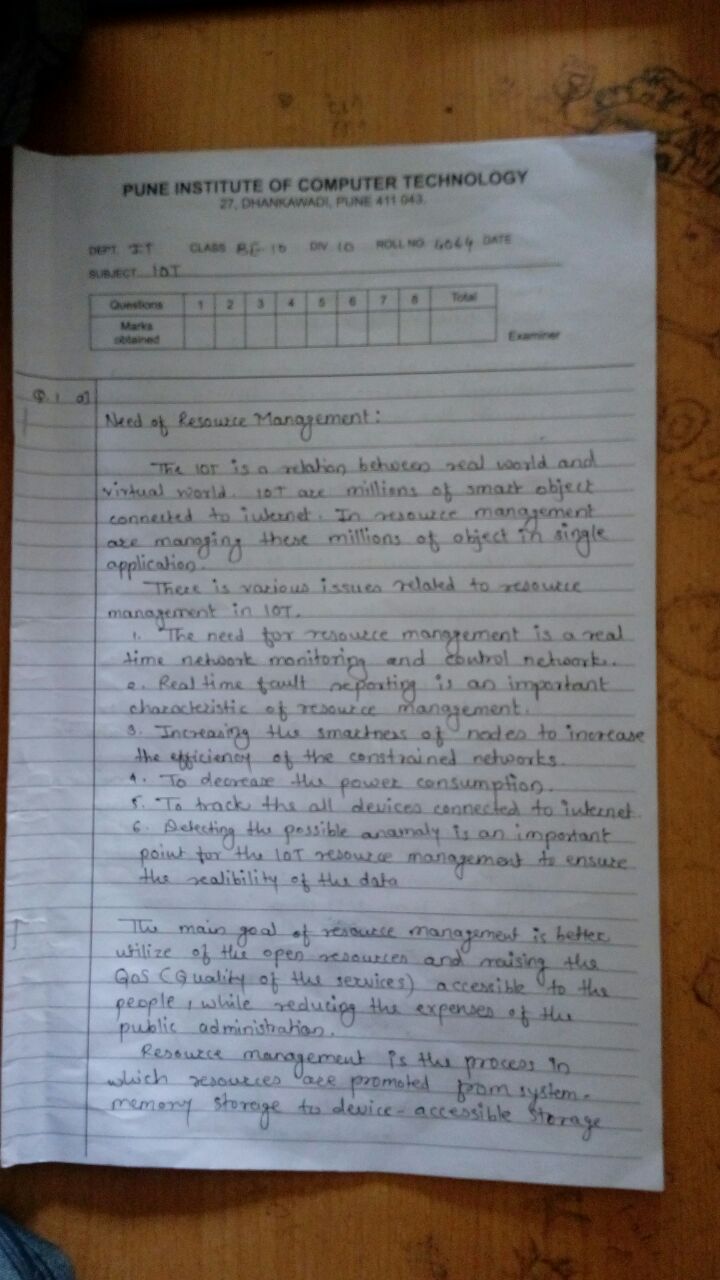 PUNE INSTITUTE OF COMPUTER TECHNOLOGY
27, DHANKAWADI, PUNE 411 043.
DEPT. IT CLASS BE-10 DIV 10 ROLL NO 4064 DATE
SUBJECT IOT
Questions 1 2 3 4 5 6 7 8 Total
Marks obtained
Examiner
Q.1 a]
Need of Resource Management:
The IOT is a relation between real world and
virtual world. IOT are millions of smart object
connected to internet. In resource management
are managing these millions of object in single
application.
There is various issues related to resource
management in IOT.
1. The need for resource mangement is a real
time network monitoring and control network.
2. Real time fault reporting is an important
characteristic of resource management.
3. Increasing the smartness of nodes to increase
the efficiency of the constrained networks.
4. To decrease the power consumption.
5. To track the all devices connected to internet.
6. Detecting the possible anamaly is an important
point for the IOT resource management to ensure
the realibility of the data
The main goal of resource management is better
utilize of the open resources and raising the
QoS (Quality of the services) accessible to the
people, while reducing the expenses of the
public administration.
Resource management is the process in
which resources are promoted from system-
memory storage to device-accessible storage